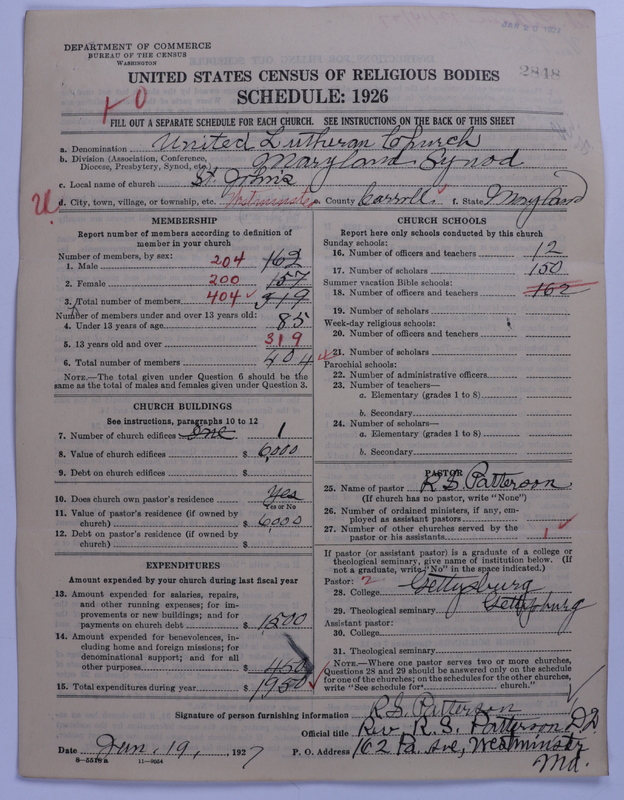 DEPARTMENT OF COMMERCE
BUREAU OF THE CENSUS
WASHINGTON
2848
UNITED STATES CENSUS OF RELIGIOUS BODIES
SCHEDULE: 1926
FILL OUT A SEPARATE SCHEDULE FOR EACH CHURCH. SEE INSTRUCTIONS ON THE BACK OF THIS SHEET
a. Denomination United Lutheran Church
b. Division (Association, Conference, Diocese, Presbytery, Synod, etc.) Maryland Synod
c. Local name of church St. John's
d. City, town, village, or township, etc. Westminster e. County Carroll f. State Maryland
MEMBERSHIP
Report number of members according to definition of
member in your church
Number of members, by sex:
1. Male 204 162
2. Female 200 157
3. Total number of members 404 319
Number of members under and over 13 years old:
4. Under 13 years of age 85
5. 13 years old and over 319
6. Total number of members 404
NOTE.—The total given under Question 6 should be the
same as the total of males and females given under Question 3.
CHURCH BUILDINGS
See instructions, paragraphs 10 to 12
7. Number of church edifices One 1
8. Value of church edifices $ 6,000
9. Debt on church edifices $
10. Does church own pastor's residence Yes
Yes or No
11. Value of pastor's residence (if owned by
church) $ 6,000
12. Debt on pastor's residence (if owned by
church) $
EXPENDITURES
Amount expended by your church during last fiscal year
13. Amount expended for salaries, repairs,
and other running expenses; for im-
provements or new buildings; and for
payments on church debt $ 1500
14. Amount expended for benevolences, in-
cluding home and foreign missions; for
denominational support; and for all
other purposes $ 450
15. Total expenditures during year $ 1950
CHURCH SCHOOLS
Report here only schools conducted by this church
Sunday schools:
16. Number of officers and teachers 12
17. Number of scholars 150
Summer vacation Bible schools:
18. Number of officers and teachers 162
19. Number of scholars
Week-day religious schools:
20. Number of officers and teachers
21. Number of scholars
Parochial schools:
22. Number of administrative officers
23. Number of teachers—
a. Elementary (grades 1 to 8)
b. Secondary
24. Number of scholars—
a. Elementary (grades 1 to 8)
b. Secondary
PASTOR
25. Name of pastor R.S. Patterson
(If church has no pastor, write "None")
26. Number of ordained ministers, if any, em-
ployed as assistant pastors
27. Number of other churches served by the
pastor or his assistants 1
If pastor (or assistant pastor) is a graduate of a college or
theological seminary, give name of institution below. (If
not a graduate, write "No" in the space indicated.)
Pastor: 2
28. College Gettysburg
29. Theological seminary Gettysburg
Assistant pastor:
30. College
31. Theological seminary
NOTE.—Where one pastor serves two or more churches,
Questions 28 and 29 should be answered only on the schedule
for one of the churches; on the schedules for the other churches,
write "See schedule for church."
Signature of person furnishing information R.S. Patterson
Official title Rev. R. S. Patterson D.D.
Date Jan. 19, 1927 P. O. Address 162 Pa. Ave, Westminster
Md.
8—5518a 11—9054